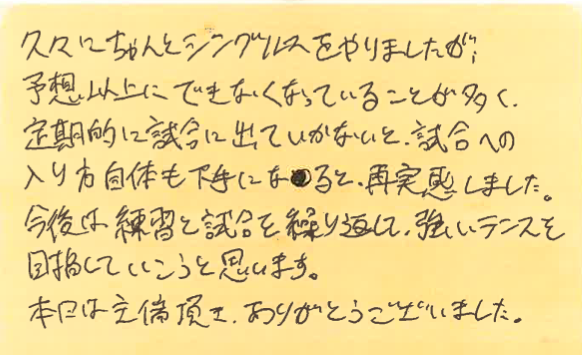 久々にちゃんとシングルスをやりましたが、
予想以上にできなくなっていることが多く、
定期的に試合に出ていかないと、試合への
入り方自体も下手になると、再実感しました。
今後は練習と試合を繰り返して、強いテニスを
目指していこうと思います。
本日は主催頂き、ありがとうございました。